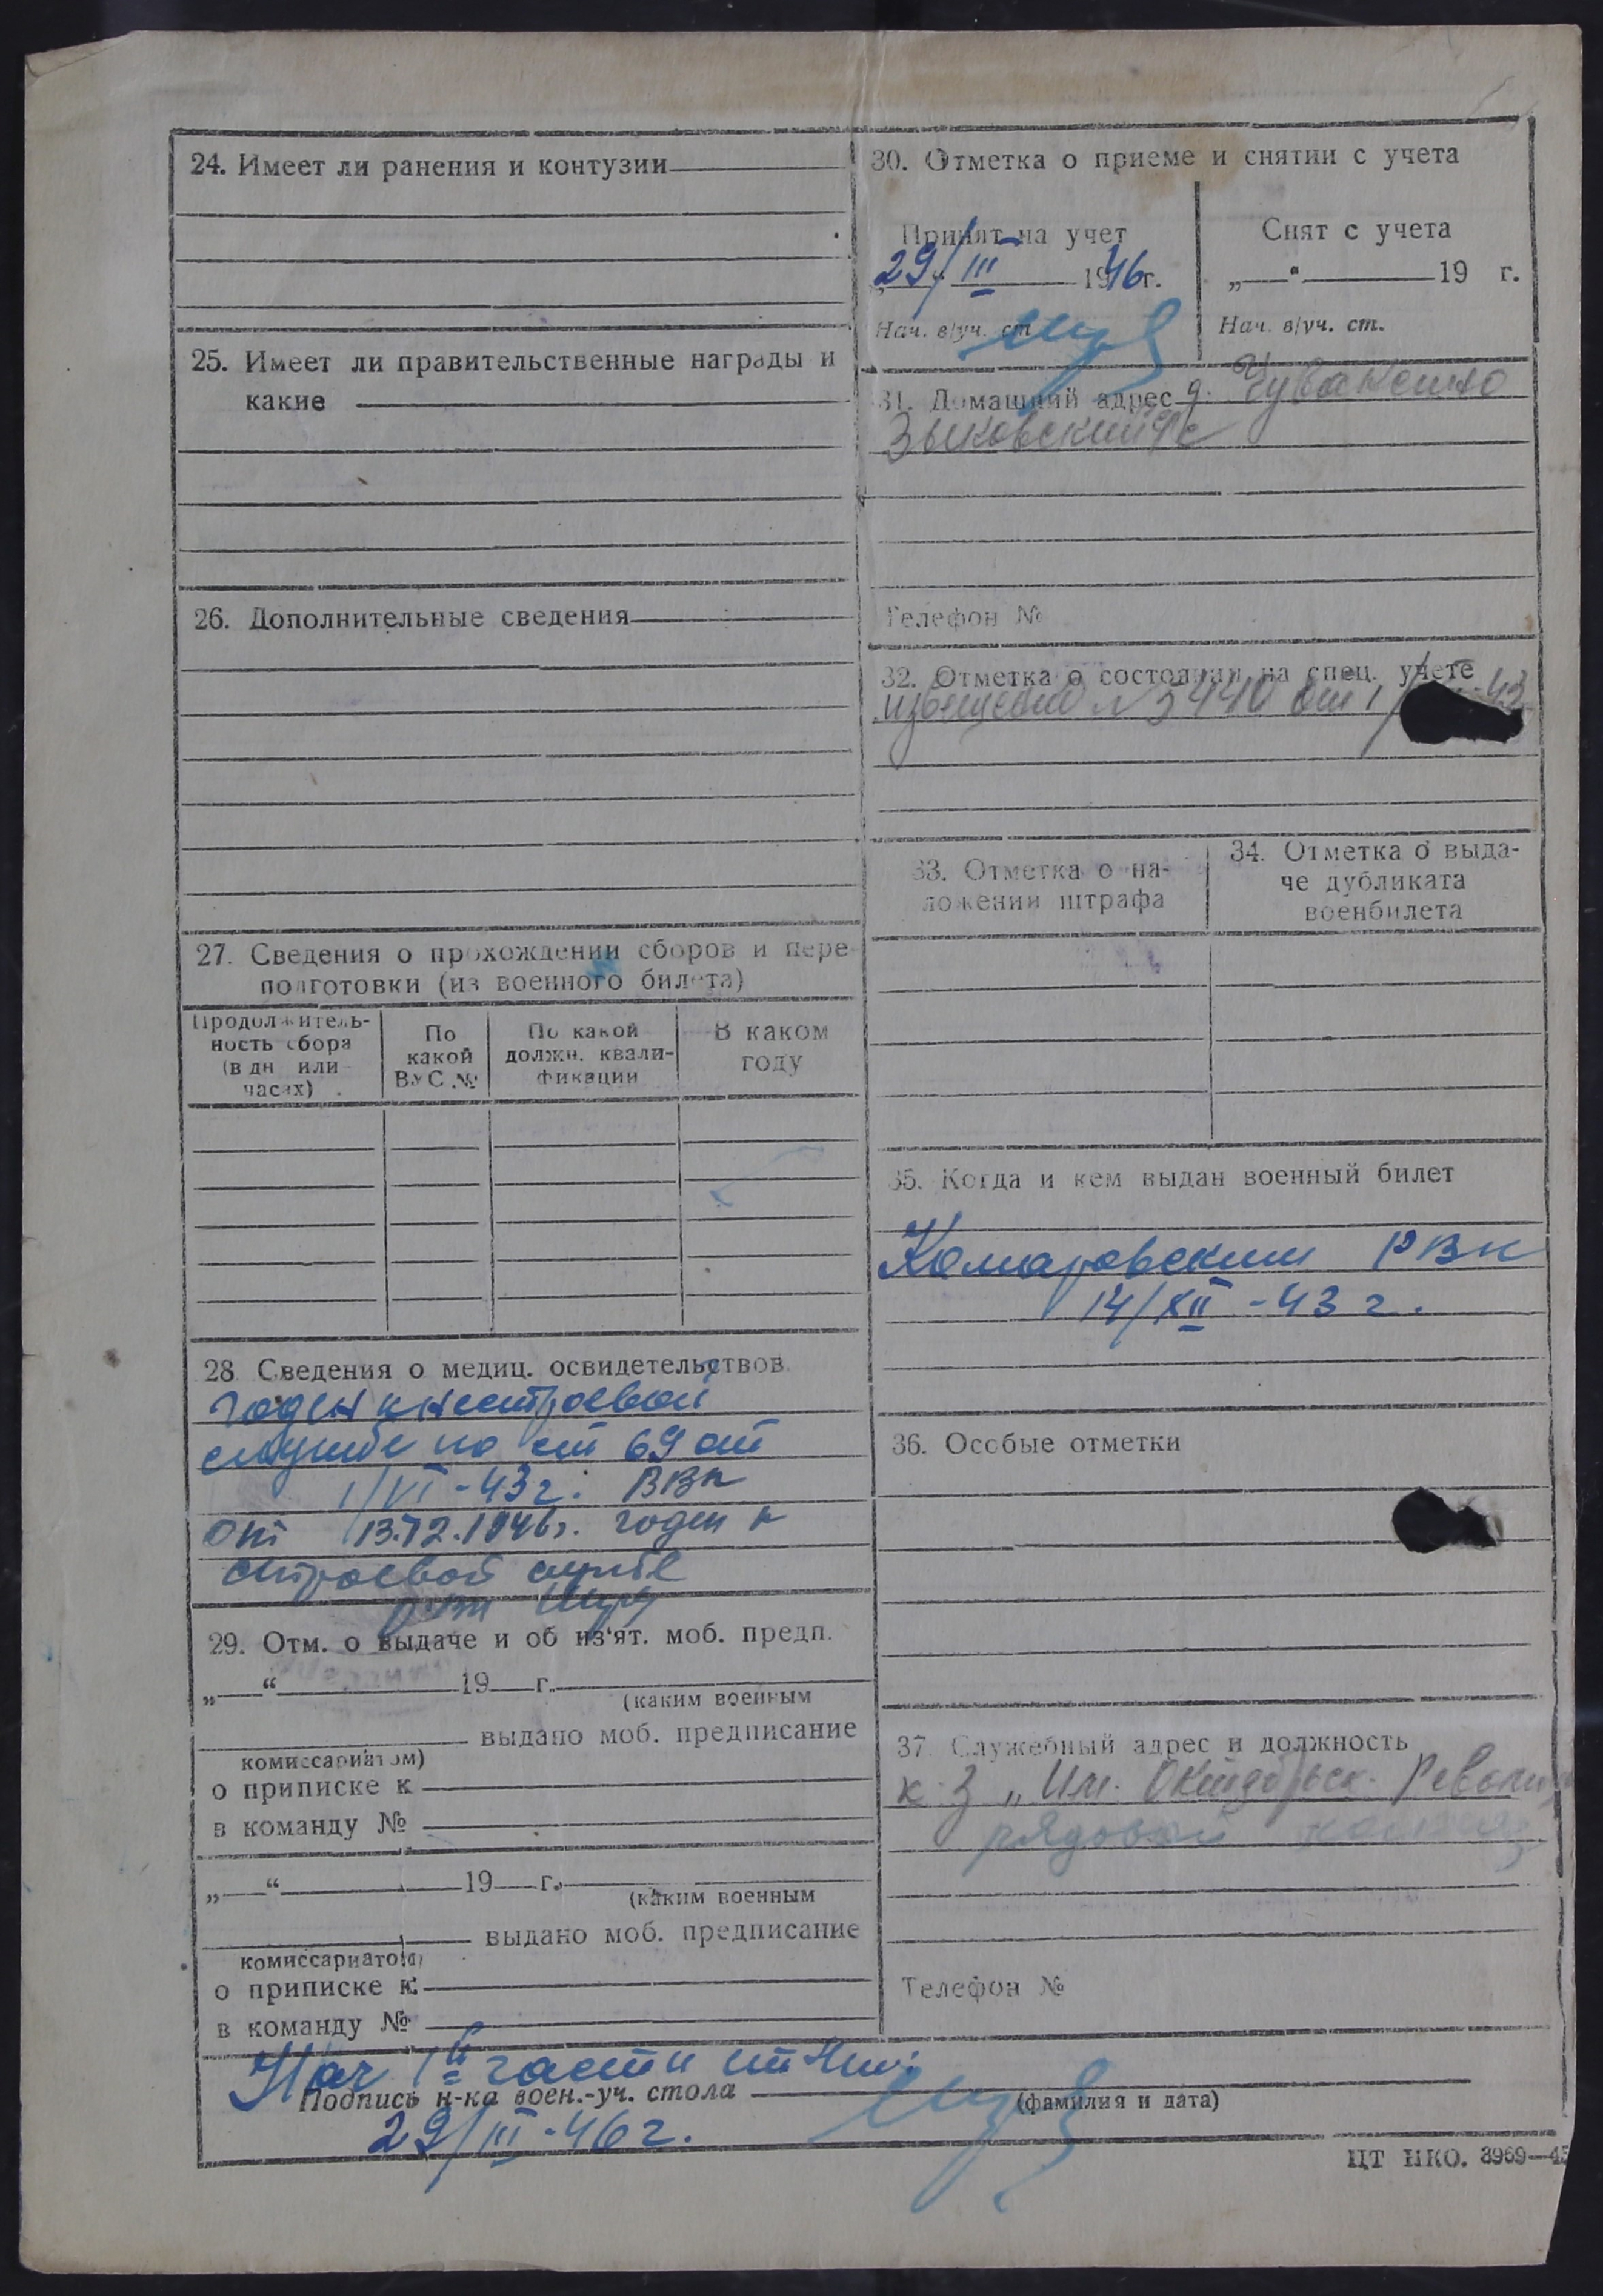 24. Имеет ли ранения и контузии
25. Имеет ли правительственные награды и
какие
26. Дополнительные сведения
27. Сведения о прохождении сборов и пере-
подготовки (из военного билета)
Продолжитель-
ность сбора
(в дн или
часах)
По
какой
ВУС №
По какой
должн. квали-
фикации
В каком
году
28 Сведения о медиц. освидетельствов.
годен к нестроевой
службе по ст 69 от
1/VI-43г. ВВК
от 13.12.1946г. годен к
строевой службе
29. Отм. о выдаче и об из'ят. моб. предп.
„ “ 19 г.
(каким военным
выдано моб. предписание
комиссариатом)
о приписке к
в команду №
„ “ 19 г.
(каким военным
выдано моб. предписание
комиссариатом)
о приписке к
в команду №
30. Отметка о приеме и снятии с учета
Принят на учет
29/III 1946г.
Нач. в/уч. ст
Снят с учета
„ “ 19 г.
Нач. в/уч. ст.
31. Домашний адрес д.
Зыковский с/с
Телефон №
32. Отметка о состоянии на спец. учете
извещение № 440 от 1/ -43
33. Отметка о на-
ложении штрафа
34. Отметка о выда-
че дубликата
военбилета
35. Когда и кем выдан военный билет
Комаровским РВК
14/XII-43 г.
36. Особые отметки
37. Служебный адрес и должность
к-з „Им. Октябрьск. Револю
рядовой
Телефон №
Нач 1й части
Подпись н-ка воен.-уч. стола
(фамилия и дата)
29/III-46г.
ЦТ НКО. 3969—45